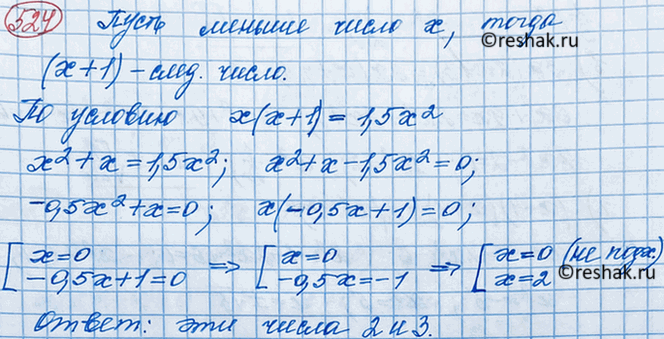 524 Пусть меньшее число x, тогда
©reshak.ru
(x+1) – след. число.
По условию x(x+1) = 1,5x²
x² + x = 1,5x²; x² + x – 1,5x² = 0;
-0,5x² + x = 0; x(-0,5x + 1) = 0;
[ x = 0 => [ x = 0 => [ x = 0 (не подх.)
-0,5x + 1 = 0 -0,5x = -1 x = 2
©reshak.ru
Ответ: эти числа 2 и 3.